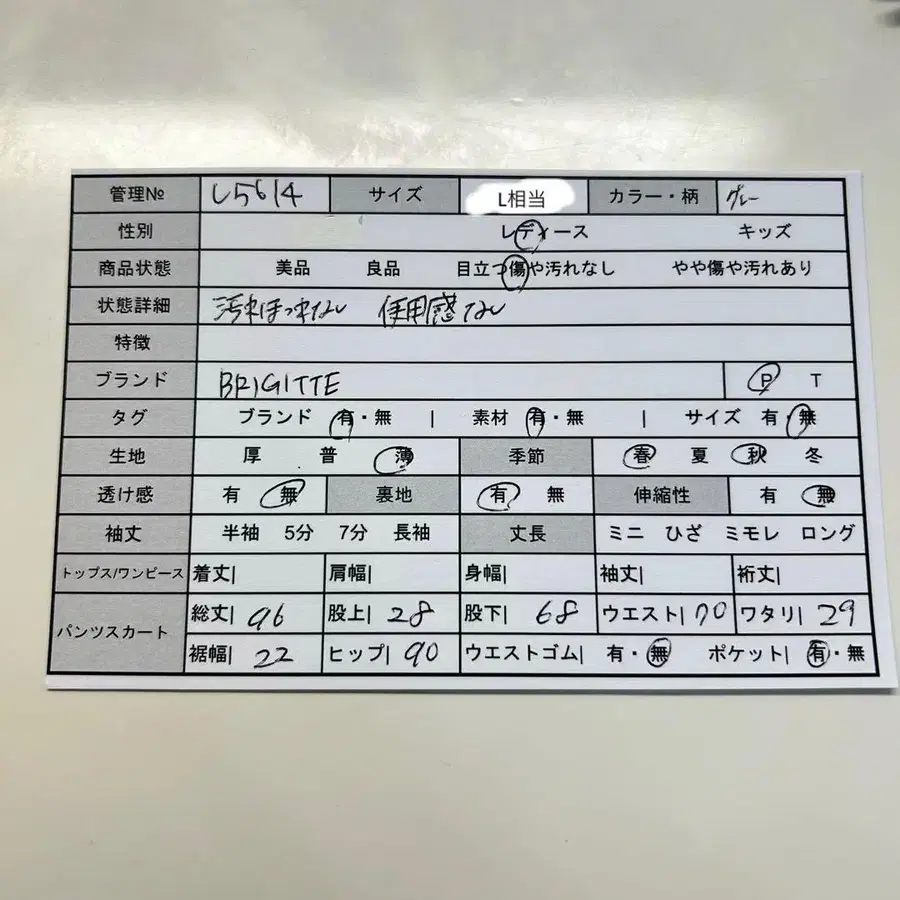 管理№ L5614 サイズ L相当 カラー・柄 グレー
性別 レディース キッズ
商品状態 美品 良品 目立つ傷や汚れなし やや傷や汚れあり
状態詳細 汚れほつれなし 使用感なし
特徴
ブランド BRIGITTE P T
タグ ブランド 有・無 | 素材 有・無 | サイズ 有・無
生地 厚 普 薄 季節 春 夏 秋 冬
透け感 有 無 裏地 有 無 伸縮性 有 無
袖丈 半袖 5分 7分 長袖 丈長 ミニ ひざ ミモレ ロング
トップス/ワンピース 着丈| 肩幅| 身幅| 袖丈| 裄丈|
パンツスカート 総丈| 96 股上| 28 股下| 68 ウエスト| 70 ワタリ| 29
裾幅| 22 ヒップ| 90 ウエストゴム| 有・無 ポケット| 有・無